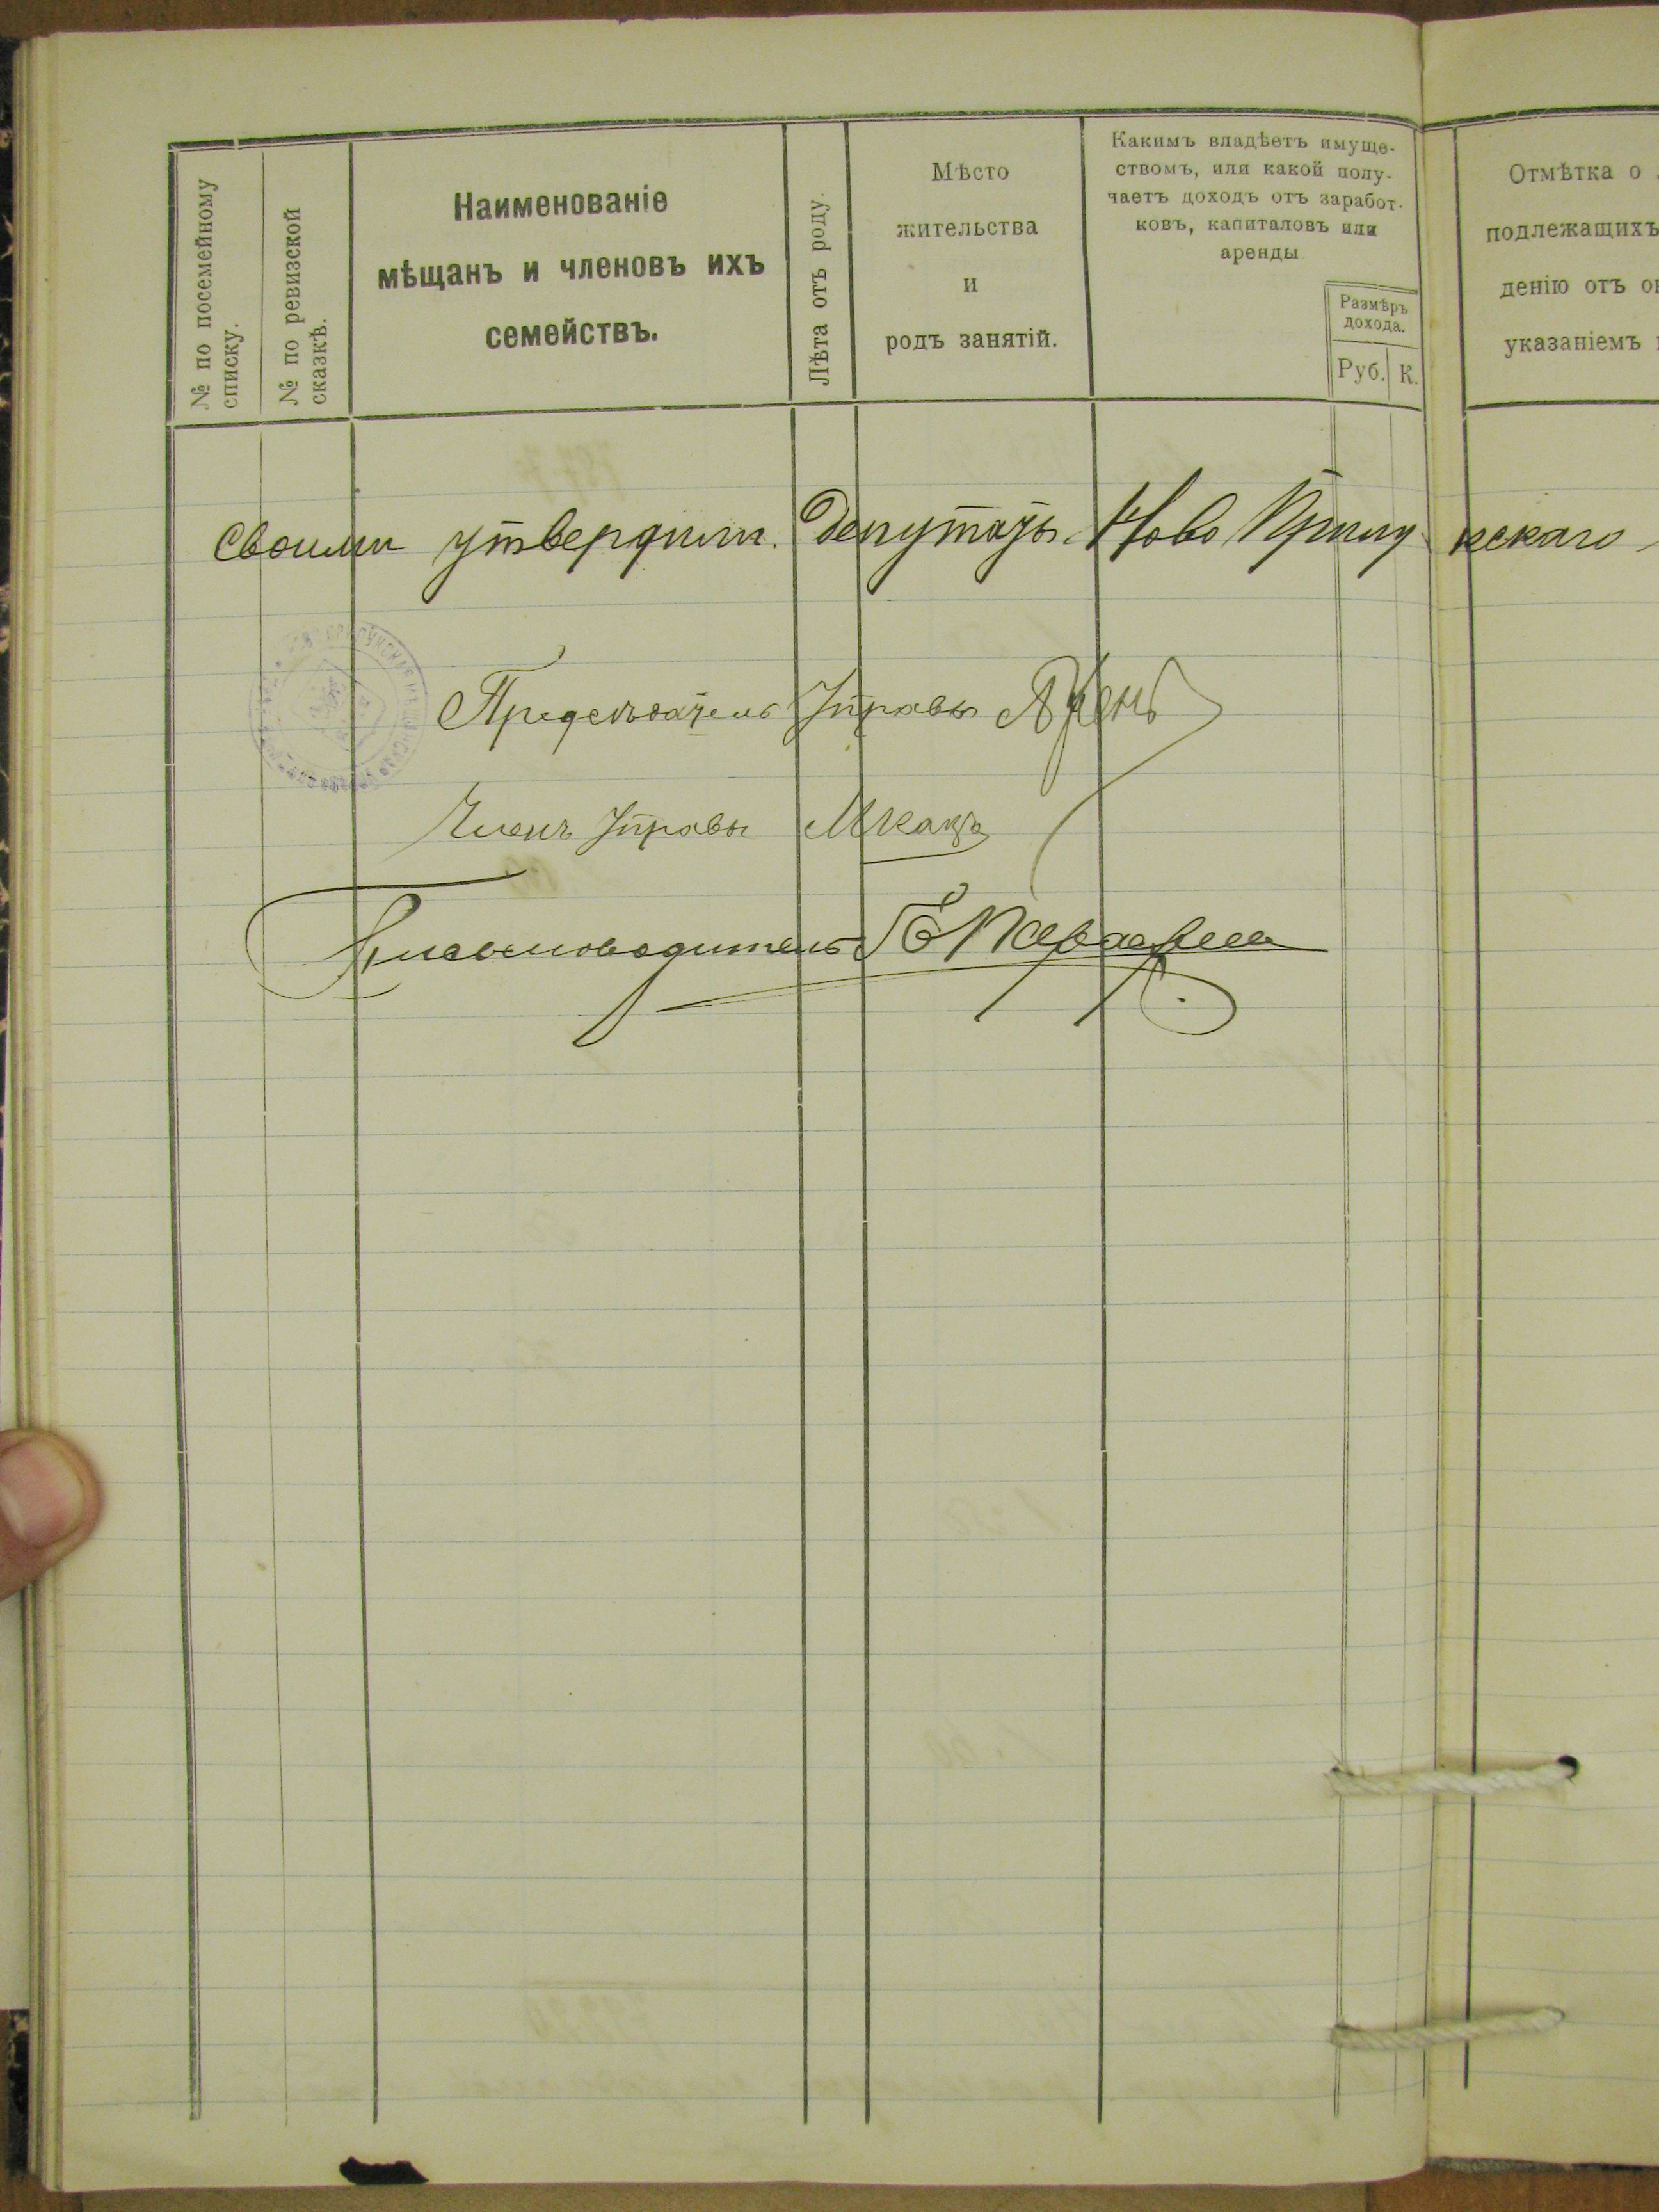 № по посемейному
списку.
№ по ревизской
сказкѣ.
Наименованіе
мѣщанъ и членовъ ихъ
семействъ.
Лѣта отъ роду.
Мѣсто
жительства
и
родъ занятій.
Какимъ владѣетъ имуще-
ствомъ, или какой полу-
чаетъ доходъ отъ заработ-
ковъ, капиталовъ или
аренды
Размѣръ
дохода.
Руб. К.
Отмѣтка о
подлежащихъ
денію отъ
указаніемъ
своими утвердили. Депутаты Ново Прилу кскаго
Председатель Управы
Членъ Управы М Кацъ
Письмоводитель